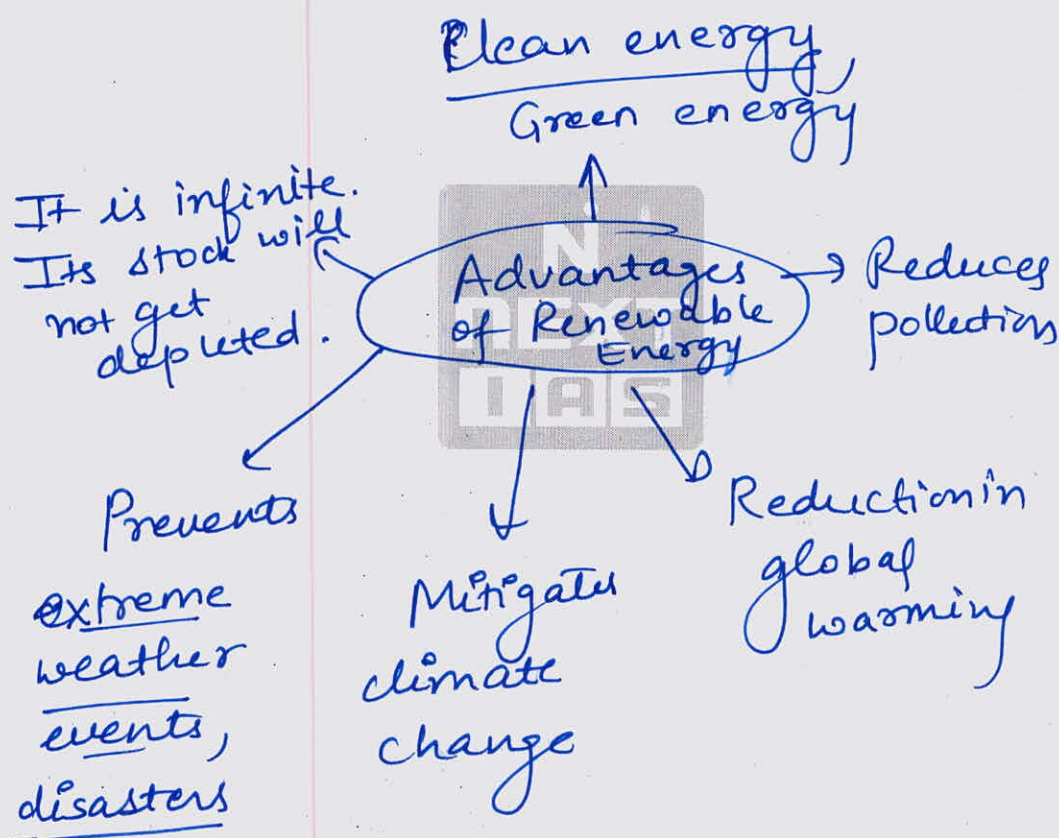 Clean energy,
Green energy
It is infinite.
Its stock will
not get
depleted.
Advantages
of Renewable
Energy
Reduces
pollection
Prevents
extreme
weather
events,
disasters
Mitigates
climate
change
Reduction in
global
warming
N
NEXT
IAS